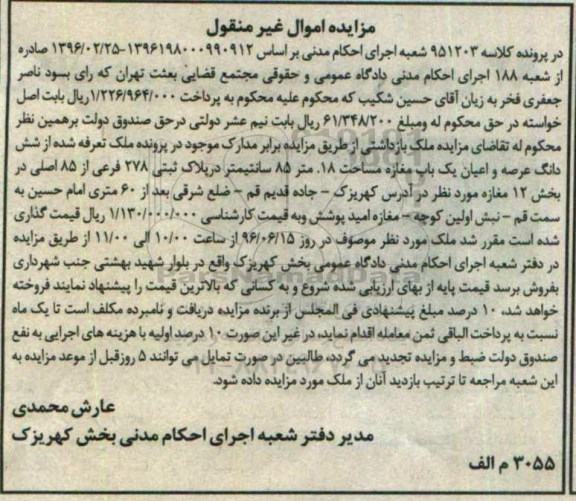 مزایده اموال غیر منقول
در پرونده کلاسه ۹۵۱۲۰۳ شعبه اجرای احکام مدنی بر اساس ۱۳۹۶۱۹۸۰۰۰۹۹۰۹۱۲-۱۳۹۶/۰۲/۲۵ صادره
از شعبه ۱۸۸ اجرای احکام مدنی دادگاه عمومی و حقوقی مجتمع قضایی بعثت تهران که رای بسود ناصر
جعفری فخر به زیان آقای حسین شکیب که محکوم علیه محکوم به پرداخت ۱/۲۲۶/۹۶۴/۰۰۰ریال بابت اصل
خواسته در حق محکوم له ومبلغ ۶۱/۳۴۸/۲۰۰ ریال بابت نیم عشر دولتی درحق صندوق دولت برهمین نظر
محکوم له تقاضای مزایده ملک بازداشتی از طریق مزایده برابر مدارک موجود در پرونده ملک تعرفه شده از شش
دانگ عرصه و اعیان یک باب مغازه مساحت ۱۸. متر ۸۵ سانتیمتر درپلاک ثبتی ۲۷۸ فرعی از ۸۵ اصلی در
بخش ۱۲ مغازه مورد نظر در آدرس کهریزک - جاده قدیم قم - ضلع شرقی بعد از ۶۰ متری امام حسین به
سمت قم - نبش اولین کوچه - مغازه امید پوشش وبه قیمت کارشناسی ۱/۱۳۰/۰۰۰/۰۰۰ ریال قیمت گذاری
شده است مقرر شد ملک مورد نظر موصوف در روز ۹۶/۰۶/۱۵ از ساعت ۱۰/۰۰ الی ۱۱/۰۰ از طریق مزایده
در دفتر شعبه اجرای احکام مدنی دادگاه عمومی بخش کهریزک واقع در بلوار شهید بهشتی جنب شهرداری
بفروش برسد قیمت پایه از بهای ارزیابی شده شروع و به کسانی که بالاترین قیمت را پیشنهاد نمایند فروخته
خواهد شد، ۱۰ درصد مبلغ پیشنهادی فی المجلس از برنده مزایده دریافت و نامبرده مکلف است تا یک ماه
نسبت به پرداخت الباقی ثمن معامله اقدام نماید، در غیر این صورت ۱۰ درصد اولیه با هزینه های اجرایی به نفع
صندوق دولت ضبط و مزایده تجدید می گردد، طالبین در صورت تمایل می توانند ۵ روزقبل از موعد مزایده به
این شعبه مراجعه تا ترتیب بازدید آنان از ملک مورد مزایده داده شود.
عارش محمدی
مدیر دفتر شعبه اجرای احکام مدنی بخش کهریزک
۳۰۵۵ م الف